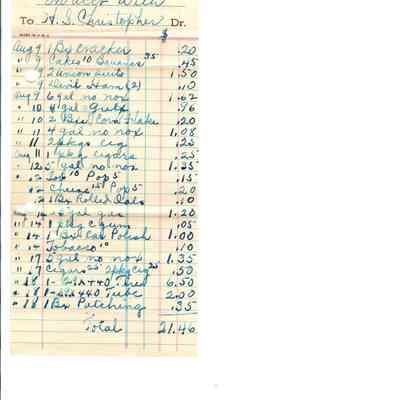 in acct with
To H. S. Christopher Dr.
$
Aug 9 1 Bx cracker .20
" 9 Cakes 10 Bananas 35 .45
" 9 2 union suits 1.50
" 9 Devil Ham (2) .10
Aug 9 6 gal no nox 1.62
" 10 4 gal Gulf .96
" 10 2 Bxs Corn Flakes .20
" 11 4 gal no nox 1.08
" 11 2 pkgs cig .25
Aug 11 1 pkg cigars .25
" 12 5 gal no nox 1.35
" 12 10 Pop 5 .15
" 12 Cheese 15 Pop 5 .20
12 1 Bx Rolled Oats .10
Aug 14 5 gal gas 1.20
" 14 1 pkg gum .05
" 14 1 Bx Car Polish 1.00
" 14 Tobacco 10 .10
" 17 5 gal no nox 1.35
" 17 Cigars 25 2 pkg cig 25 .50
" 18 1 - 440 Tire 6.50
" 18 1 - 440 Tube 2.00
" 18 1 Bx Patching .35
Total 21.46